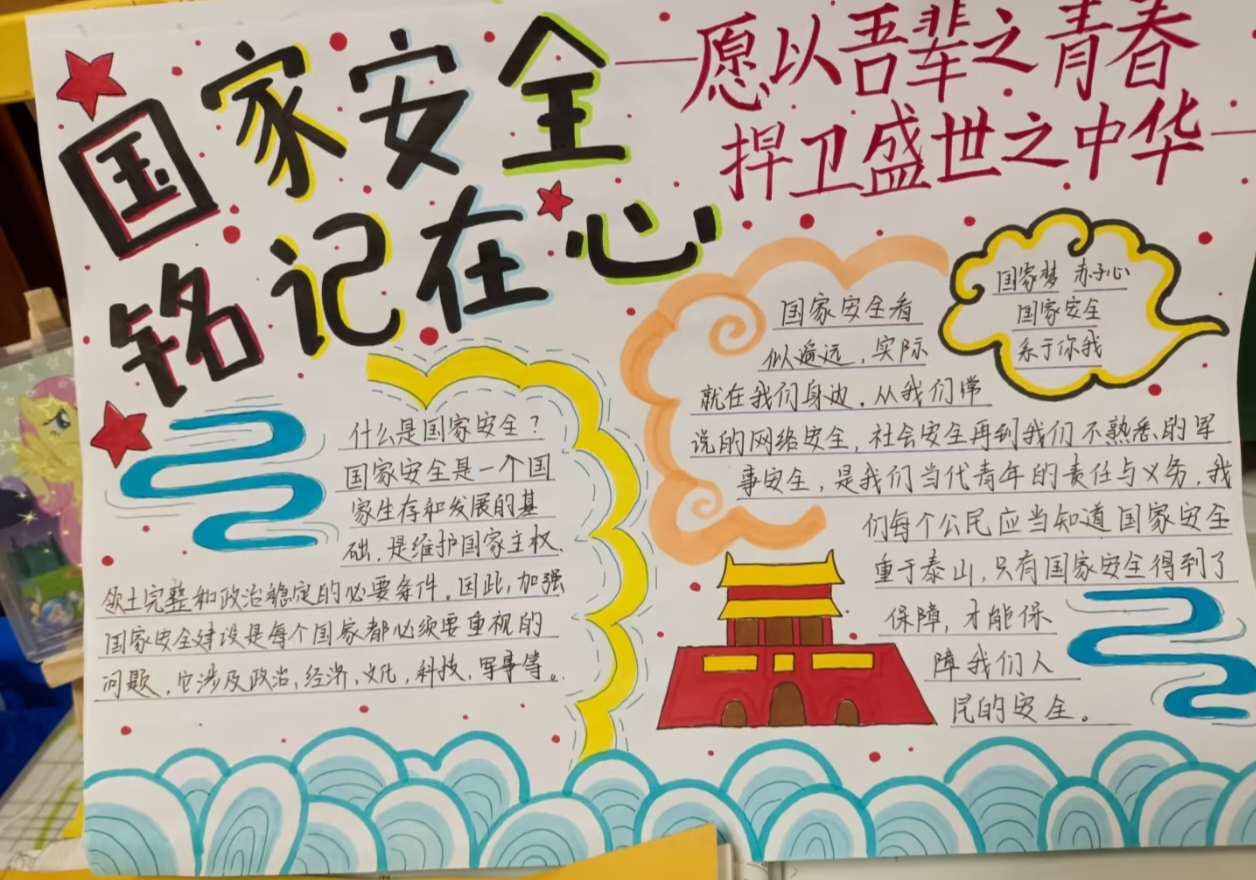 国家安全
铭记在心
愿以吾辈之青春
捍卫盛世之中华
国家梦 赤子心
国家安全
系于你我
什么是国家安全?
国家安全是一个国
家生存和发展的基
础,是维护国家主权、
领土完整和政治稳定的必要条件。因此,加强
国家安全建设是每个国家都必须要重视的
问题,它涉及政治、经济、文化、科技、军事等。
国家安全看
似遥远,实际
就在我们身边,从我们常
说的网络安全,社会安全再到我们不熟悉的军
事安全,是我们当代青年的责任与义务,我
们每个公民应当知道国家安全
重于泰山,只有国家安全得到了
保障,才能保
障我们人
民的安全。